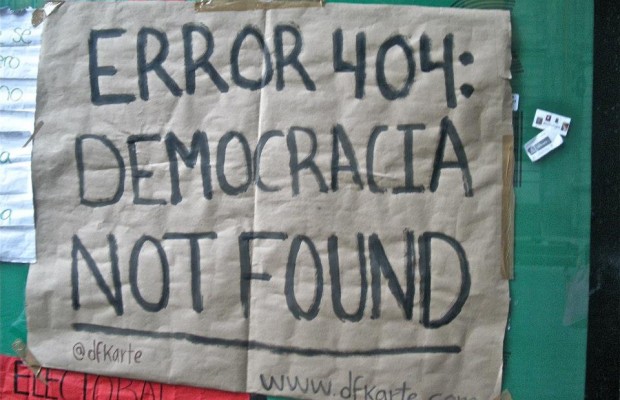 ERROR 404:
DEMOCRACIA
NOT FOUND
@dfkarte
www.dfkarte.com
ELECTORAL